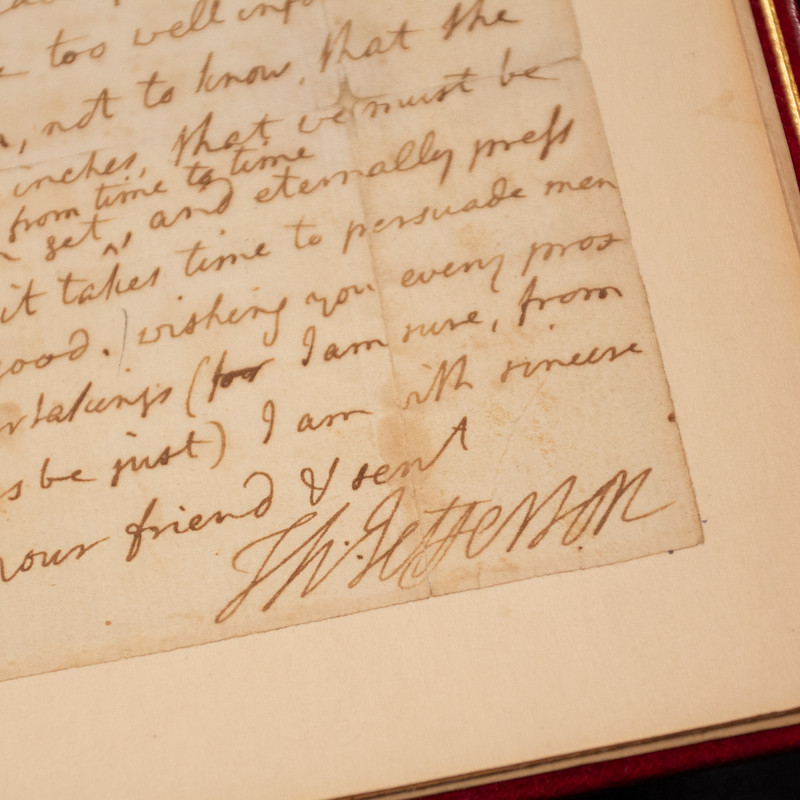 too well info
not to know, that the
inches, that we must be
from time to time
get, ^ and eternally press
it takes time to persuade men
good.) wishing you every pros
takings (for I am sure, from
be just) I am with sincere
your friend & servt
Th: Jefferson